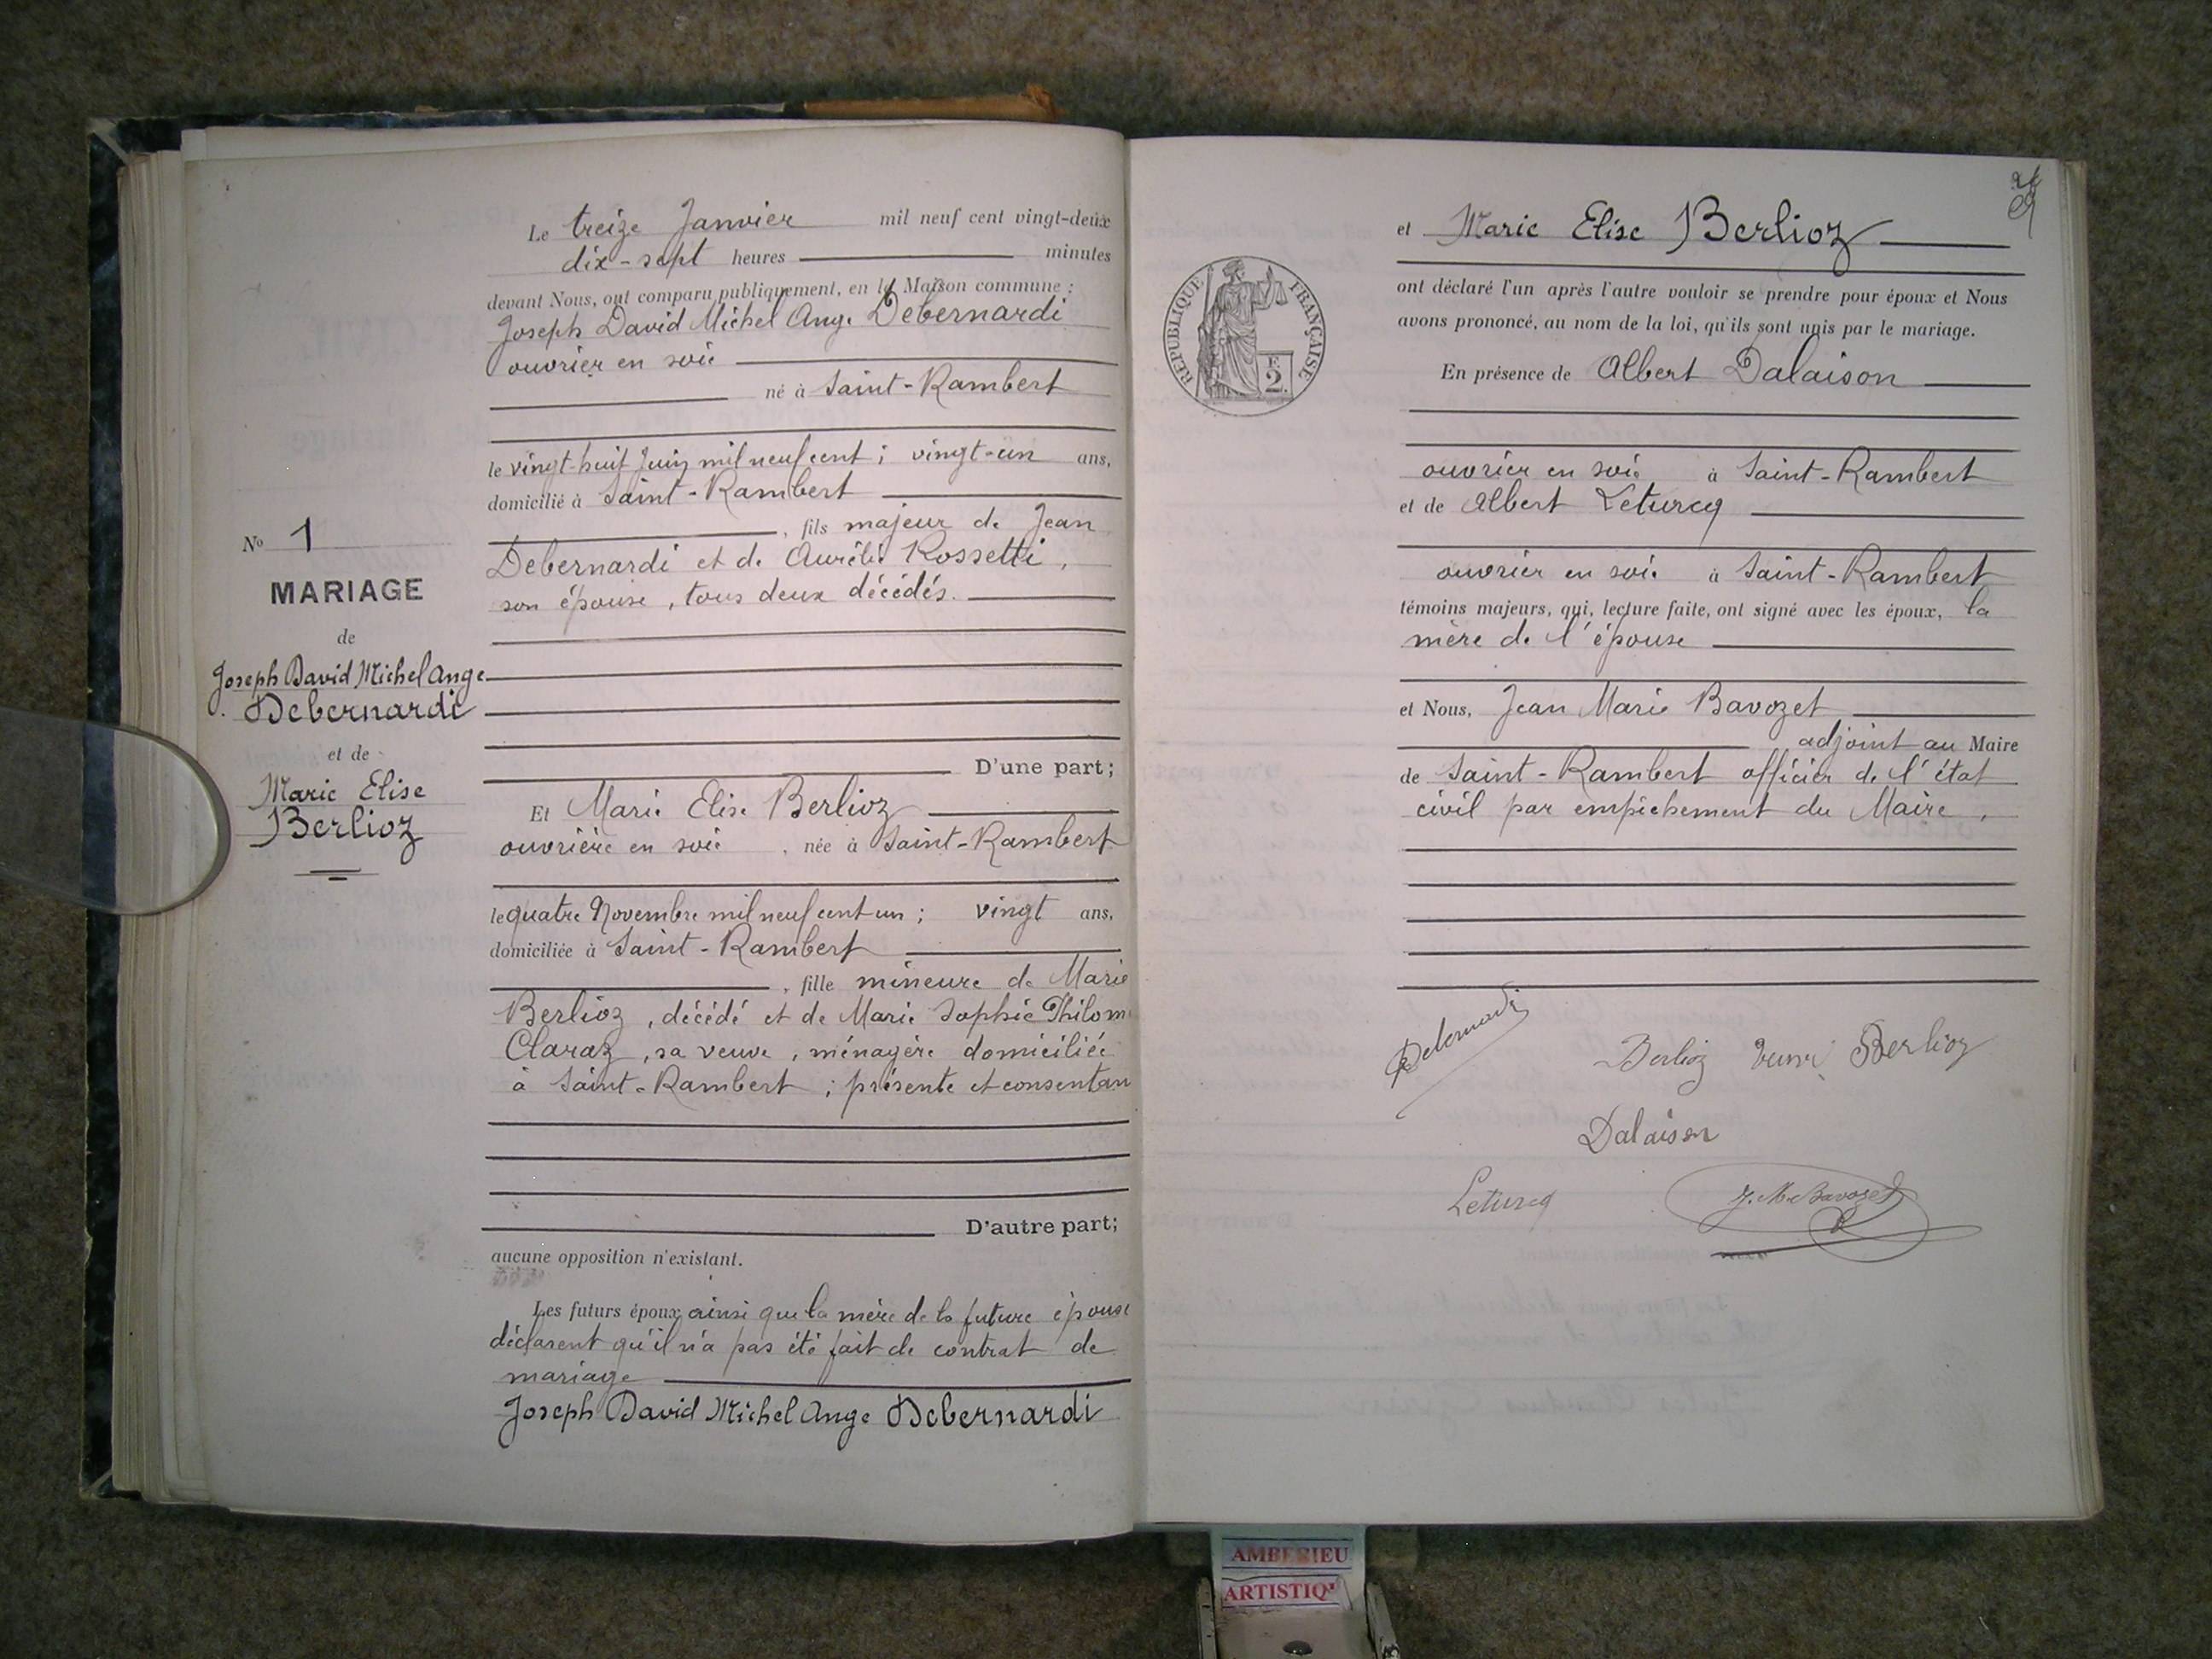 Le treize Janvier mil neuf cent vingt-deux
dix-sept heures minutes
devant Nous, ont comparu publiquement, en la Maison commune :
Joseph David Michel Ange Debernardi
ouvrier en soie
né à Saint-Rambert
le vingt-huit Juin mil neuf cent ; vingt-un ans,
domicilié à Saint-Rambert
, fils majeur de Jean
Debernardi et de Aurélie Rossetti,
son épouse, tous deux décédés.
No 1
MARIAGE
de
Joseph David Michel Ange
Debernardi
et de
Marie Elise
Berlioz
D'une part;
Et Marie Elise Berlioz
ouvrière en soie , née à Saint-Rambert
le quatre Novembre mil neuf cent un ; vingt ans,
domiciliée à Saint-Rambert
, fille mineure de Marie
Berlioz, décédé et de Marie Sophie Philom
Claraz, sa veuve, ménagère domiciliée
à Saint-Rambert ; présente et consentan
D'autre part;
aucune opposition n'existant.
Les futurs époux ainsi que la mère de la future épouse
déclarent qu'il n'a pas été fait de contrat de
mariage
Joseph David Michel Ange Debernardi
et Marie Elise Berlioz
ont déclaré l'un après l'autre vouloir se prendre pour époux et Nous
avons prononcé, au nom de la loi, qu'ils sont unis par le mariage.
RÉPUBLIQUE FRANÇAISE
F.
2.
En présence de Albert Dalaison
ouvrier en soie à Saint-Rambert
et de Albert Leturcq
ouvrier en soie à Saint-Rambert
témoins majeurs, qui, lecture faite, ont signé avec les époux, la
mère de l'épouse
et Nous, Jean Marie Bavozet
adjoint au Maire
de Saint-Rambert officier de l'état
civil par empêchement du Maire,
Debernardi
Berlioz Veuve Berlioz
Dalaison
Leturcq
J. M. Bavozet
AMBERIEU
ARTISTIQ